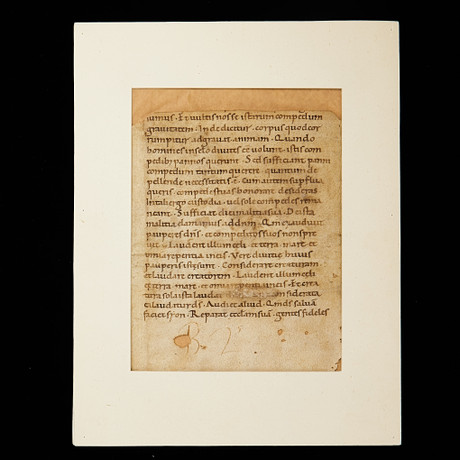 sumus · Et vultis nosse istarum compedum
gravitatem · Inde dicitur · corpus quod cor
rumpitur adgravat animam · Quando
homines in sedo divites ee volunt · istis com
pedibus pannos querunt · Sed sufficiant panni
compedum tantum querere · quantum de
pellende necessitati s · Cum autem superflua
queris · compedes tuas honorare desideras
In tali ergo custodia · vel sole compedes rema
neant · Sufficiat diei malitia sua · De ista
malitia clamamus ad dnm · Qm exaudivit
pauperes dns · et compeditos suos non spre
vit · Laudent illum celi et terra · mare et
omnia repentia in eis · Vere divitie huius
pauperis iste sunt · Considerare creaturam
et laudare creatorem · Laudent illum celi
& terra · mare et omnia repentia in eis · Et cre
tura sola ista laudat considerata
cu laudatur ds · Audi et aliud · Qm ds salvam
faciet sion · Reparat ecclam suam · gentes fideles
B. 2